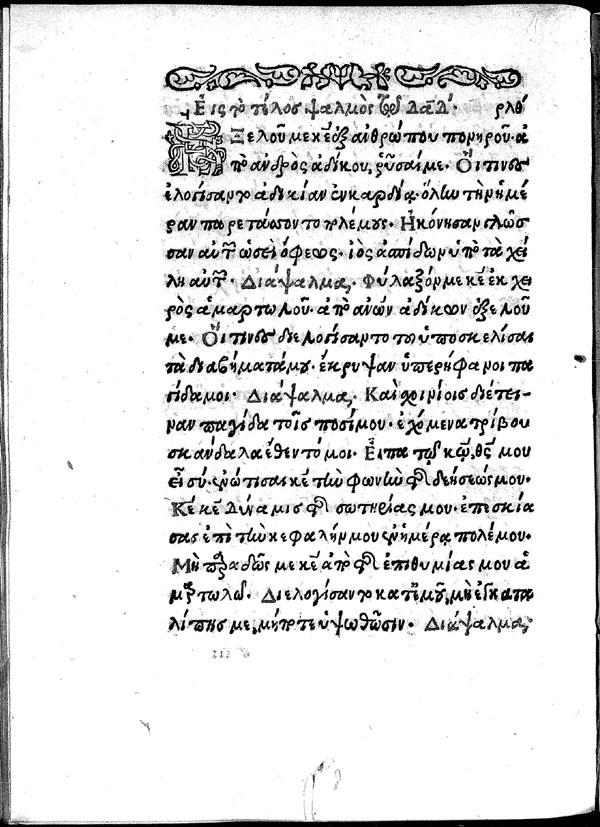 Εἰς τὸ τέλος ψαλμὸς τῷ Δαδ́. ρλθ́
ἘΞελοῦ με κε ἐξ ἀνθρώπου πονηροῦ. ἀ
πὸ ἀνδρὸς ἀδίκου, ῥῦσαί με. Οἵτινες
ἐλογίσαντο ἀδικίαν ἐν καρδίᾳ. ὅλην τὴν ἡμέ
ραν παρετάσσοντο πολέμους. Ἠκόνησαν γλῶσ
σαν αὐτῶν ὡσεὶ ὄφεως. ἰὸς ἀσπίδων ὑπὸ τὰ χεί
λη αὐτῶν. Διάψαλμα. Φύλαξόν με κε ἐκ χει
ρὸς ἁμαρτωλοῦ. ἀπὸ ανών ἀδίκων ἐξελοῦ
με. Οἵτινες διελογίσαντο τοῦ ὑποσκελίσαι
τὰ διαβήματά μου. ἔκρυψαν ὑπερήφανοι πα
γίδα μοι. Διάψαλμα. Καὶ σχοινίοις διέτει-
ναν παγίδα τοῖς ποσί μου. ἐχόμενα τρίβου
σκάνδαλα ἔθεντό μοι. Εἶπα τῷ κω, θς μου
εἶ σύ. ἐνώτισαι κε τὴν φωνὴν τῆς δεήσεώς μου.
Κε κε Δύναμις τῆς σωτηρίας μου. ἐπεσκία
σας ἐπὶ τὴν κεφαλήν μου ἐν ἡμέρᾳ πολέμου.
Μὴ παραδῷς με κε ἀπὸ τῆς ἐπιθυμίας μου ἁ
μαρτωλῷ. Διελογίσαντο κατ' ἐμοῦ, μὴ ἐγκατα
λίπῃς με, μήποτε ὑψωθῶσιν. Διάψαλμα,